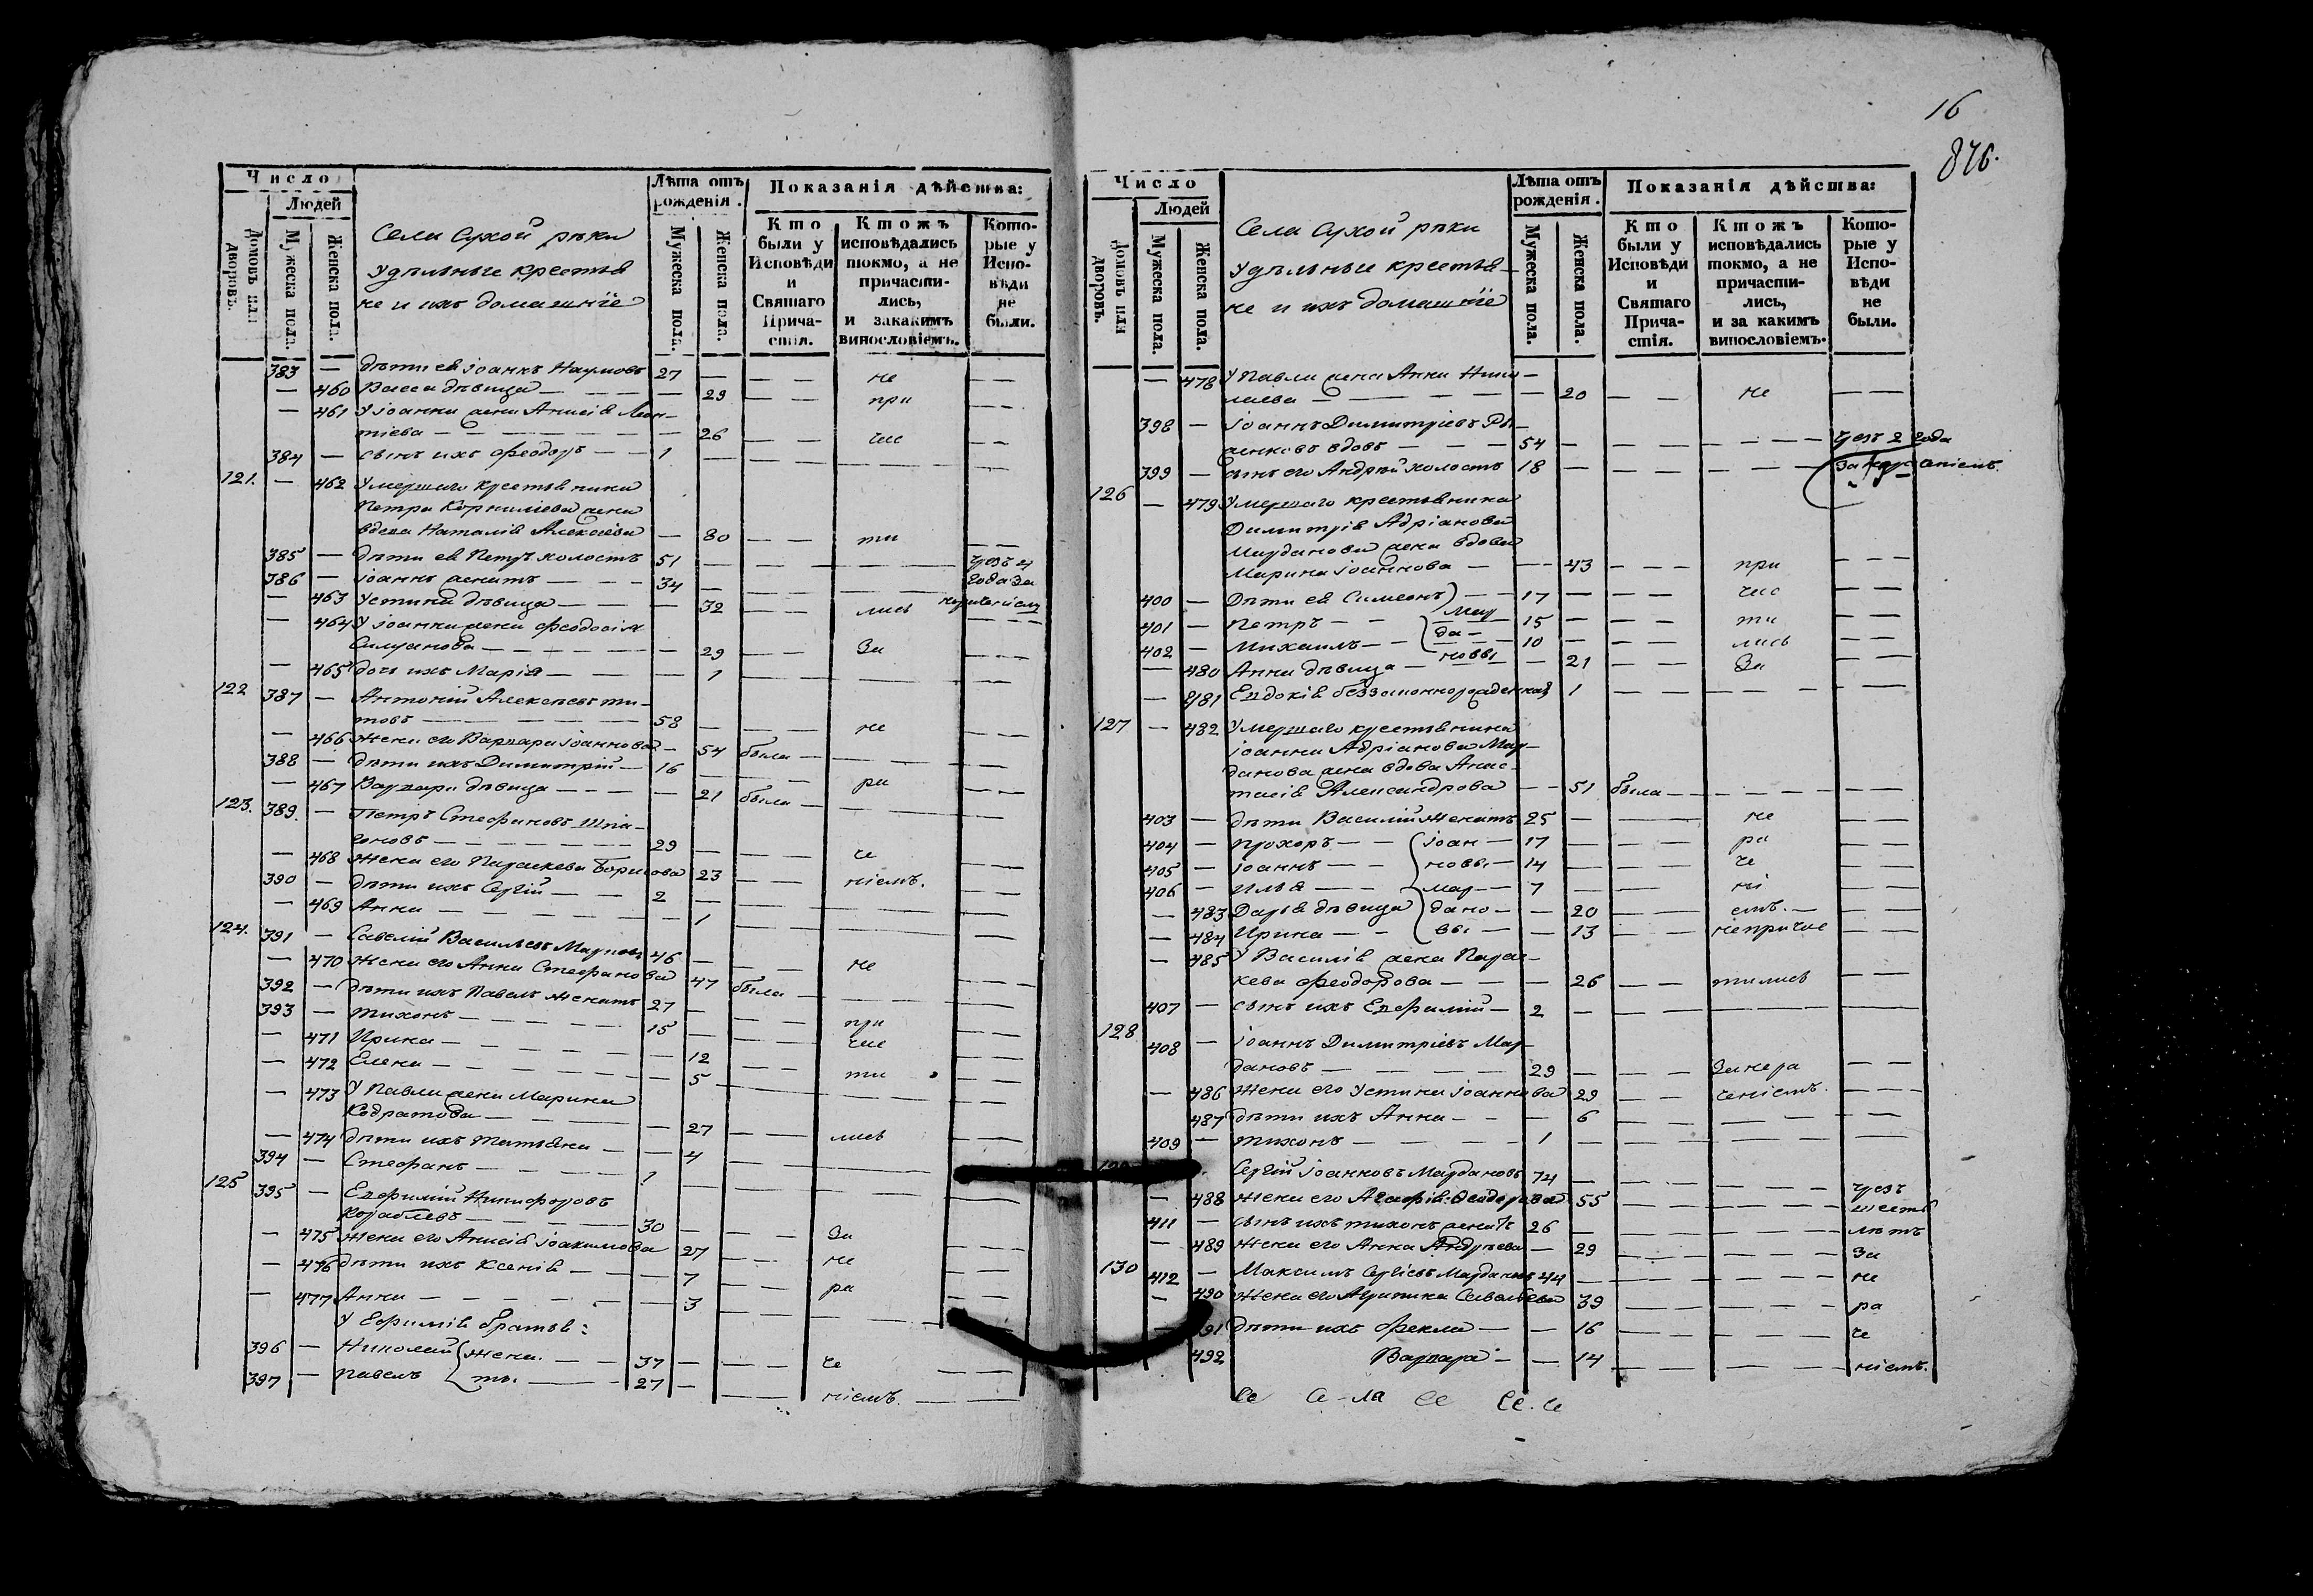 16
876.
Число
Людей
Домовъ или дворовъ.
Мужеска пола.
Женска пола.
Села Сухой рѣки
удѣльные крестья
не и ихъ домашніе
Лѣта отъ рожденія.
Мужеска пола.
Женска пола.
Показанія дѣйства:
Кто были у Исповѣди и Святаго Прича- стія.
Ктожъ исповѣдались токмо, а не причасти- лись, и закакимъ винословіемъ.
Кото- рые у Испо- вѣди не были.
383 — дѣти ея Іоаннъ Наумовъ 27 — — — не — —
— 460 Васса дѣвица — — — 29 — — при — —
— 461 У Іоанна жена Анисія Леон-
тіева — — — — 26 — — час — —
384 — сынъ ихъ Феодоръ — — 1 — — — — —
121. — 462 Умершаго крестьянина
Петра Корнилїева жена
вдова Наталія Алексіева — 80 — — ти
385 — дѣти ея Петръ холостъ 51 — — — — чрезъ 4
386 — Іоаннъ женатъ — — — 34 — — — — года за
— 463 Устинія дѣвица — — — 32 — — лись
— 464 У Іоанна жена Феодосія
— 29 — — За — —
— 465 дочь ихъ Марія — — — 1 — — — —
122 387 — Антоній Алексѣевъ Ти-
товъ — — — — 58 — — — не — —
— 466 Жена его Варвара Іоаннова — 54 была — — —
388 — дѣти ихъ Димитрій — 16 — — — ра — —
— 467 Варвара дѣвица — — — — 21 была — — —
123. 389. — Петръ Стефановъ
29 — — — че — —
— 468 Жена его Параскева Борисова 23 — — ніемъ. — —
390 — дѣти ихъ Сергій — — 2 — — — — —
— 469 Анна — — — — 1 — — — —
124. 391 — Савелій Васильевъ 46 — — — не — —
— 470 Жена его Анна Стефанова 47 была — — —
392 — дѣти ихъ Павелъ женатъ 27 — — — при — —
393 — Тихонъ — — — — 15 — — — час — —
— 471 Ирина — — — — — 12 — — ти — —
— 472 Елена — — — — — 5 — — — —
— 473 У Павла жена Марина
Кодратова — — — 27 — — лись — —
— 474 дѣти ихъ Татьяна — — 4 — — — —
394 — Стефанъ — — — 1 — — — — —
125 395 — Евфимій Никифоровъ
Кораблевъ — — — 30 — — — За — —
— 475 Жена его Анисія Іоакимова 27 — — не — —
— 476 дѣти ихъ Ксенія — — — 7 — — ра — —
— 477 Анна — — — — — 3 — — — —
У Ефимія братья:
396 — Николай жена. — — 37 — — — че — —
397 — Павелъ ты. — — 27 — — — ніемъ. — —
Число
Людей
Домовъ или дворовъ.
Мужеска пола.
Женска пола.
Села Сухой рѣки
Удѣльные крестья—
не и ихъ домашніе
Лѣта отъ рожденія.
Мужеска пола.
Женска пола.
Показанія дѣйства:
Кто были у Исповѣди и Святаго Прича- стія.
Ктожъ исповѣдались токмо, а не причасти- лись, и за какимъ винословіемъ.
Кото- рые у Испо- вѣди не были.
— 478 У Павла жена Анна
— 20 — — не — —
398 — Іоаннъ Димитріевъ
вдовъ — — — 54 — — — — — чрезъ 2 года
399 — сынъ его Андрѣй холостъ 18 — — — — — за
126 — 479 Умершаго крестьянина
Димитрія Адріанова
Марданова жена вдова
Марина Іоаннова — — 43 — — — при — —
400 — Дѣти ея Симеонъ — — 17 — — — час — —
401 — Петръ — — Мар 15 — — — ти — —
402 — Михаилъ — — да — 10 — — — лись — —
— 480 Анна дѣвица — новы — 21 — — За — —
— 481 Евдокія беззаконнорожденная 1 — — — — —
127 — 482 Умершаго крестьянина
Іоанна Адріанова Мар—
данова жена вдова Анас-
тасія Александрова — — 51 была — — — — —
403 — дѣти Василій женатъ 25 — — — не — —
404 — Прохоръ — — іоан — 17 — — — ра — —
405 — Іоаннъ — — новы — 14 — — — че — —
406 — Илья — — мар — 7 — — — ні — —
— 483 Дарья дѣвица дано — — 20 — — емъ. — — —
— 484 Ирина — — вы — — 13 — — непричас — —
— 485 У Василія жена Парас-
кева Феодорова — — — 26 — — тились — —
407 — сынъ ихъ Евфимій — 2 — — — — —
128 408 — Іоаннъ Димитріевъ Мар-
дановъ — — — — 29 — — — За нера — —
— 486 Жена его Устинія Іоаннова 29 — — ченіемъ. — —
487 дѣти ихъ Анна — — — 6 — — — — —
409 — Тихонъ — — — — 1 — — — — —
Сергій Іоанновъ Мардановъ 74 — — — — чрезъ
— 488 Жена его Агафія Феодорова 55 — — — — шесть
411 — сынъ ихъ Тихонъ женатъ 26 — — — — лѣтъ
— 489 Жена его Анна Андрѣева — 29 — — — — За
130 412 — Максимъ Сергіевъ Мардановъ 44 — — — — не
— 490 Жена его Агрипина Савельева 39 — — — — ра
91 дѣти ихъ Фекла — — 16 — — — — че
492 Варвара — — 14 — — — — ніемъ.
Се Се-ла Се Се. Се